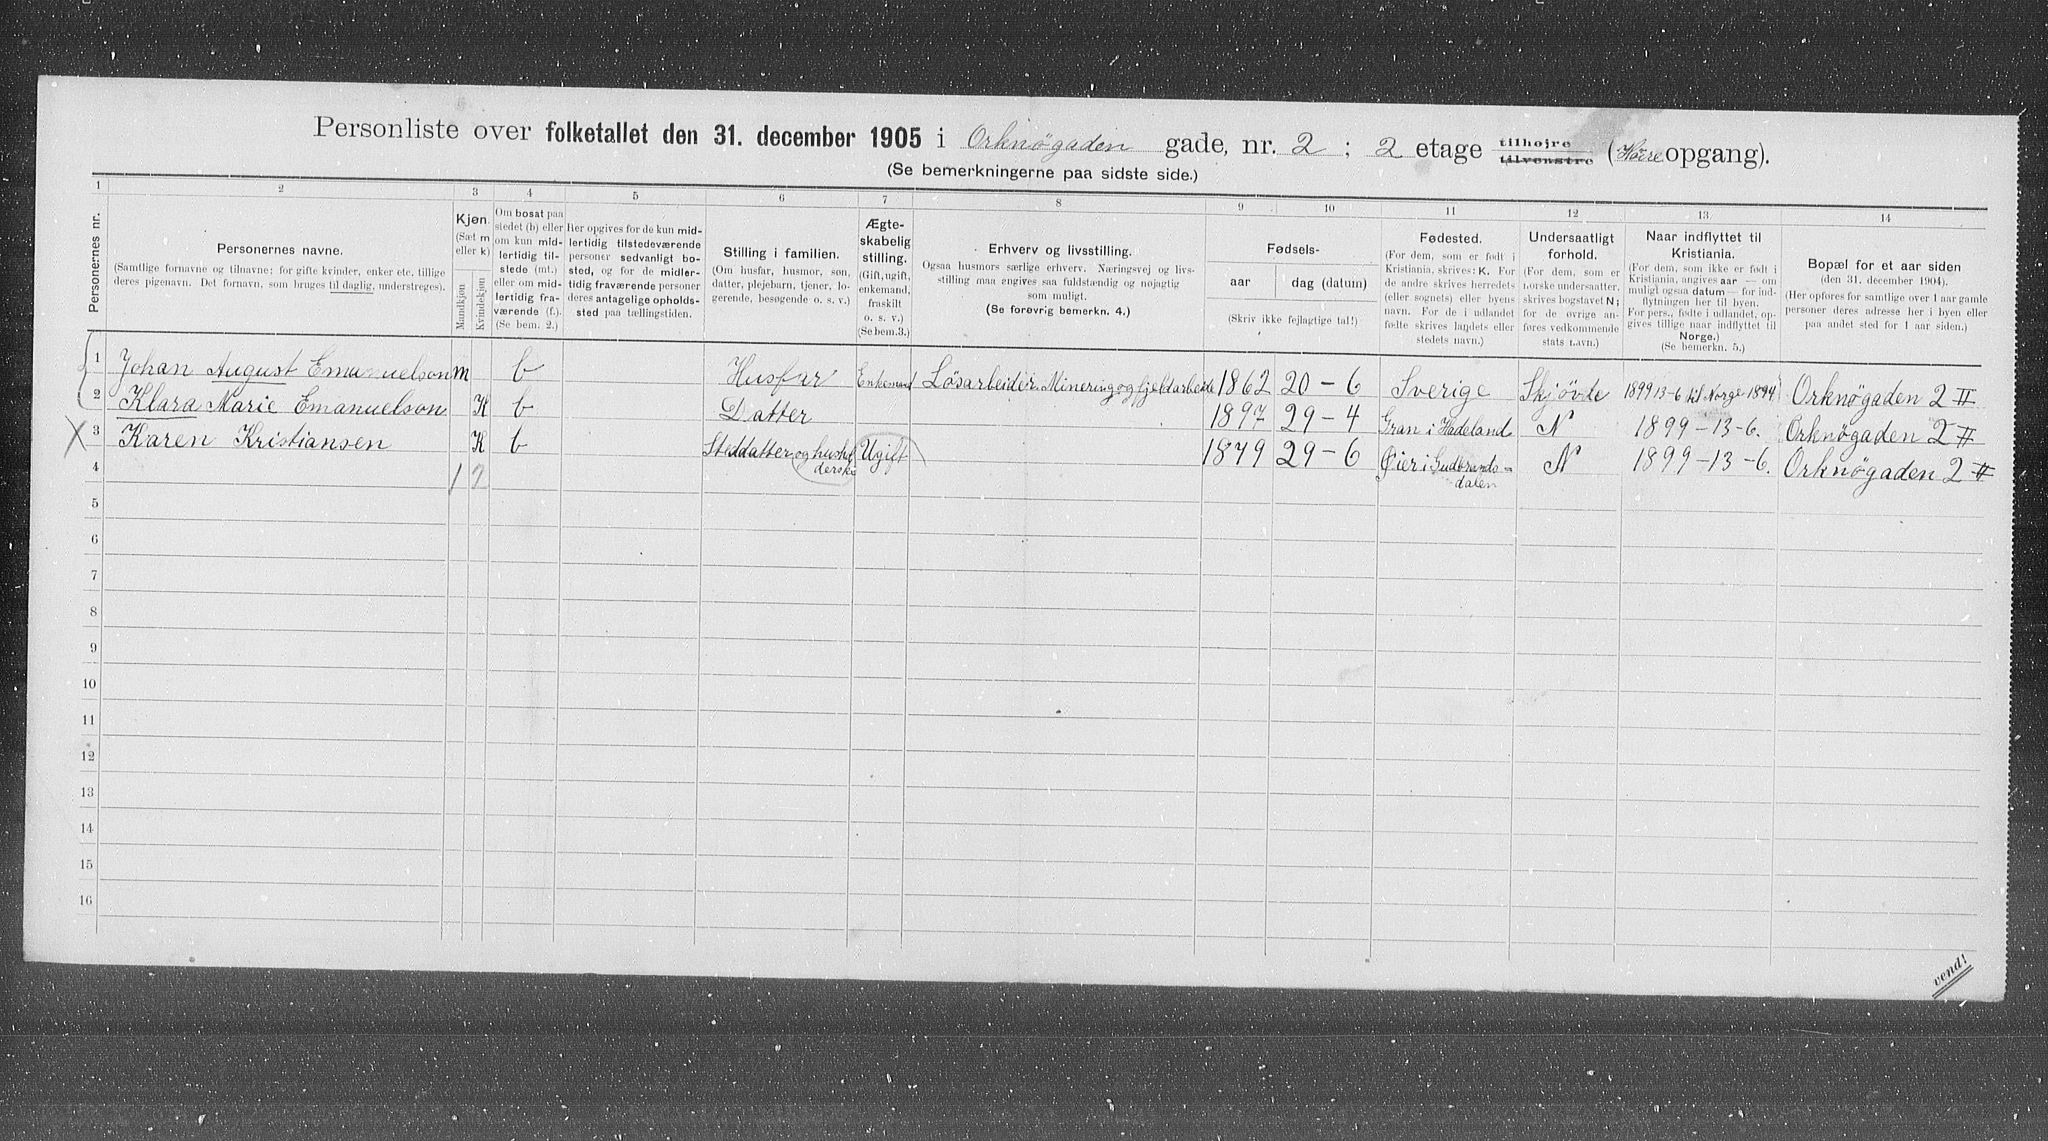 Personliste over folketallet den 31. december 1905 i Orknøgaden gade, nr. 2 ; 2 etage tilhøjre tilvenstre (Høire opgang).
(Se bemerkningerne paa sidste side.)
1 2 3 4 5 6 7 8 9 10 11 12 13 14
Personernes nr.
Personernes navne.
(Samtlige fornavne og tilnavne; for gifte kvinder, enker etc. tillige
deres pigenavn. Det fornavn, som bruges til daglig, understreges).
Kjøn.
(Sæt m
eller k)
Mandkjøn
Kvindekjøn
Om bosat paa
stedet (b) eller
om kun mid-
lertidig til-
stede (mt.)
eller om mid-
lertidig fra-
værende (f.).
(Se bem. 2.)
Her opgives for de kun mid-
lertidig tilstedeværende
personer sedvanligt bo-
sted, og for de midler-
tidig fraværende personer
deres antagelige opholds-
sted paa tællingstiden.
Stilling i familien.
(Om husfar, husmor, søn,
datter, plejebarn, tjener, lo-
gerende, besøgende o. s. v.)
Ægte-
skabelig
stilling.
(Gift, ugift,
enkemand,
fraskilt
o. s. v.)
(Se bem. 3.)
Erhverv og livsstilling.
Ogsaa husmors særlige erhverv. Næringsvej og livs-
stilling maa angives saa fuldstændig og nøjagtig
som muligt.
(Se forøvrig bemerkn. 4.)
Fødsels-
aar
dag (datum)
(Skriv ikke fejlagtige tal!)
Fødested.
(For dem, som er født i
Kristiania, skrives: K. For
de andre skrives herredets
(eller sognets) eller byens
navn. For de i udlandet
fødte skrives landets eller
stedets navn.)
Undersaatligt
forhold.
(For dem, som er
norske undersaatter,
skrives bogstavet N;
for de øvrige an-
føres vedkommende
stats navn.)
Naar indflyttet til
Kristiania.
(For dem, som ikke er født i
Kristiania, angives aar — om
muligt ogsaa datum — for ind-
flytningen her til byen.
For pers., fødte i udlandet, op-
gives tillige naar indflyttet til
Norge.)
(Se bemerkn. 5.)
Bopæl for et aar siden
(den 31. december 1904).
(Her opføres for samtlige over 1 aar gamle
personer deres adresse her i byen eller
paa andet sted for 1 aar siden.)
1 Johan August Emanuelson m b Husfar Enkemand Løsarbeider Minering og fjeldarbeide 1862 20-6 Sverige Skjövde 1899 13-6 til Norge 1894 Orknøgaden 2 II
2 Klara Marie Emanuelson K b Datter 1897 29-4 Gran i Hadeland N 1899-13-6. Orknøgaden 2 II
X 3 Karen Kristiansen K b Steddatter og hushol
derske Ugift 1879 29-6 Øier i Gudbrands-
dalen N 1899-13-6. Orknøgaden 2 II
4 1 2
5
6
7
8
9
10
11
12
13
14
15
16
vend!